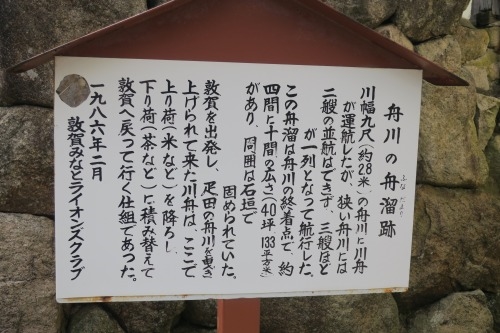 舟川の舟溜跡
ふなだまり
川幅九尺(約2.8米)の舟川に川舟
が運航したが、狭い舟川には
二艘の並航はできず、三艘ほど
が一列となって航行した。
この舟溜は舟川の終着点で、約
四間に十間の広さ(40坪 133平方米)
があり、周囲は石垣で
固められていた。
敦賀を出発し、疋田の舟川を曳き
上げられて来た川舟は、ここで
上り荷(米など)を降ろし
下り荷(茶など)に積み替えて
敦賀へ戻って行く仕組であった。
一九八六年二月
敦賀みなとライオンズクラブ